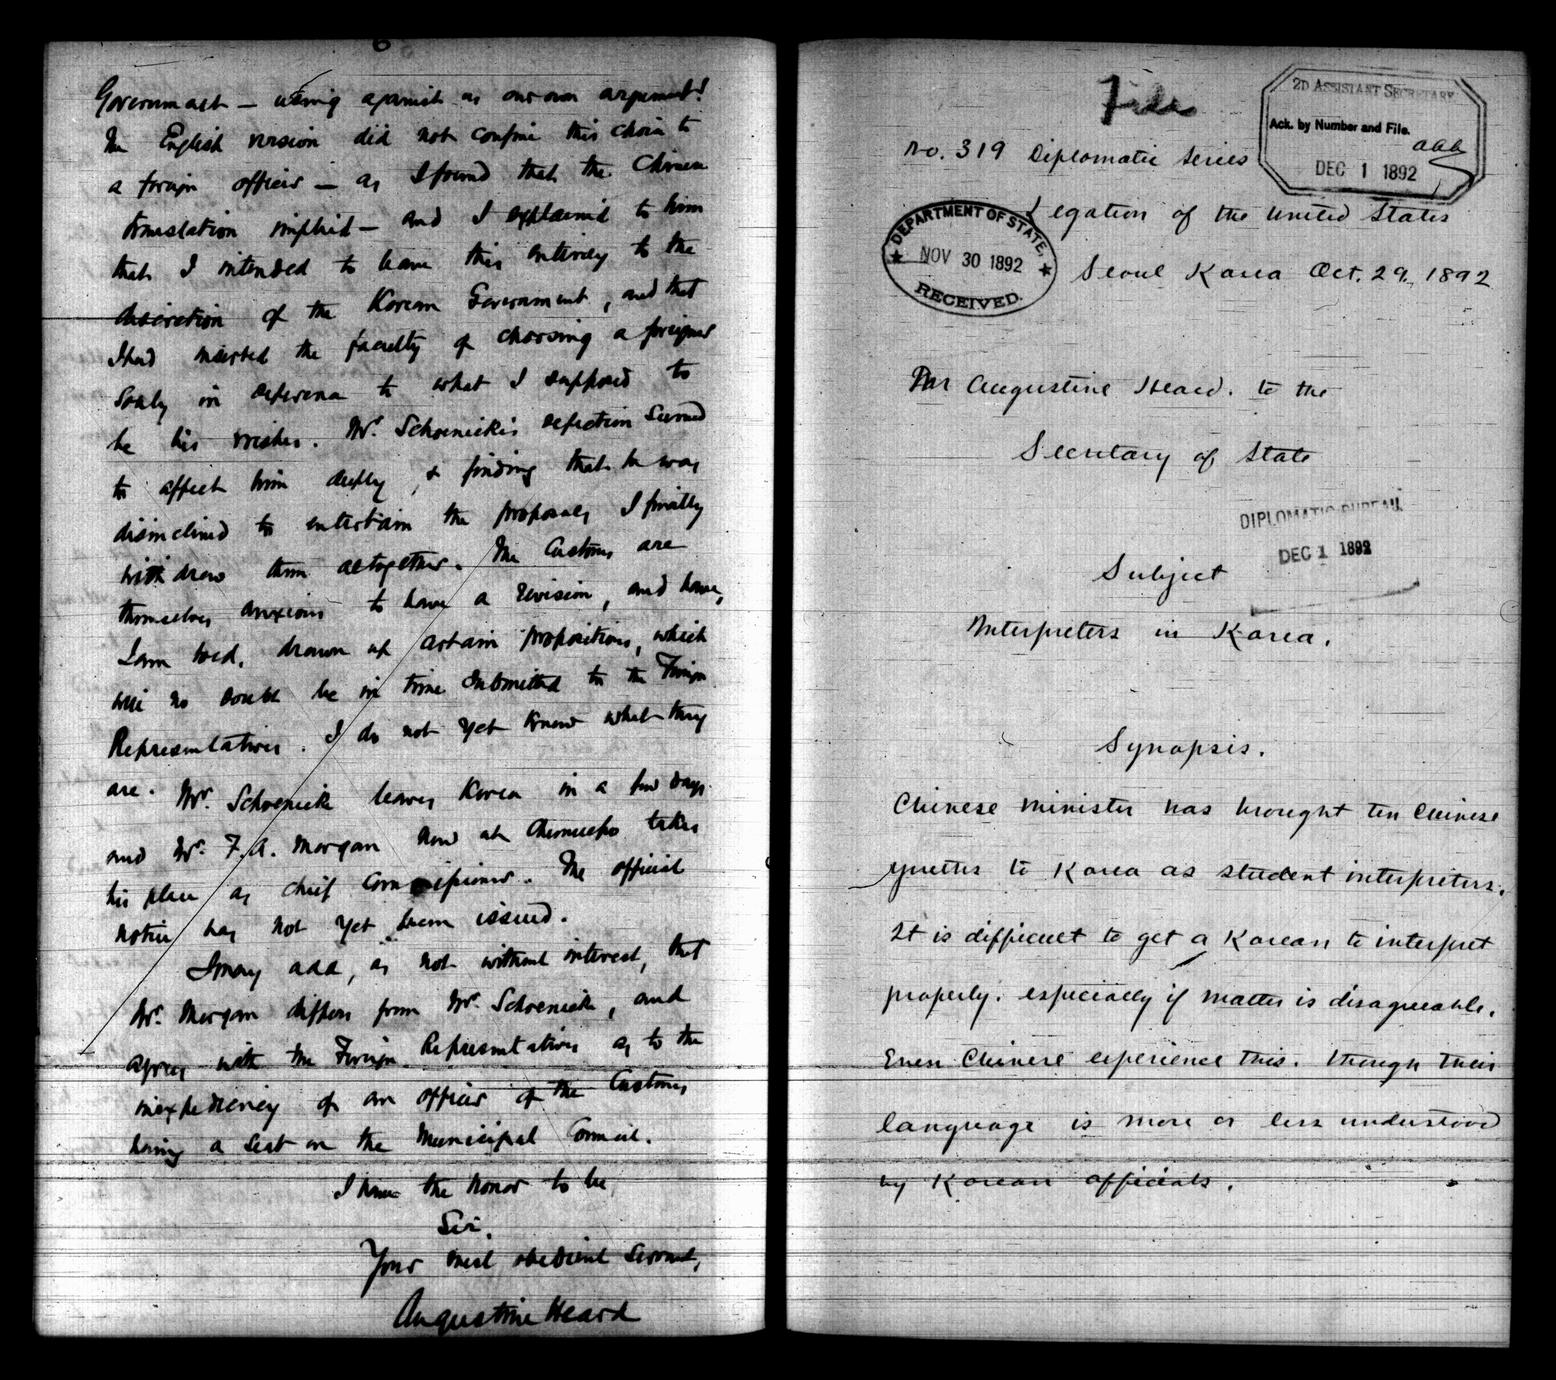 6
Government — using against us our own argument!
The English version did not confine this choice to
a foreign officer — as I found that the Chinese
translation implied — and I explained to him
that I intended to leave this entirely to the
discretion of the Korean Government, and that
I had inserted the faculty of choosing a foreigner
solely in deference to what I supposed to
be his wishes. Mr. Schoenicke's defection seemed
to affect him deeply, & finding that he was
disinclined to entertain the proposals, I finally
withdrew them altogether. The Customs are
themselves anxious to have a revision, and have,
I am told, drawn up certain propositions, which
will no doubt be in time submitted to the Foreign
Representatives. I do not yet know what they
are. Mr. Schoenicke leaves Korea in a few days
and Mr. F.A. Morgan now at Chemulpo takes
his place as chief Commissioner. The official
notice has not yet been issued.
I may add, as not without interest, that
Mr. Morgan differs from Mr. Schoenicke, and
agrees with the Foreign Representatives as to the
inexpediency of an officer of the Customs
having a seat on the Municipal Council.
I have the honor to be
Sir,
Your most obedient Servant,
Augustine Heard
File
2D ASSISTANT SECRETARY
Ack. by Number and File.
DEC 1 1892
No. 319 Diplomatic Series
Legation of the United States
DEPARTMENT OF STATE.
NOV 30 1892
RECEIVED.
Seoul Korea Oct. 29, 1892
Mr Augustine Heard. to the
Secretary of State
DIPLOMATIC BUREAU.
DEC 1 1892
Subject
Interpreters in Korea.
Synopsis.
Chinese Minister has brought ten Chinese
youths to Korea as student interpreters.
It is difficult to get a Korean to interpret
properly. especially if matter is disagreeable.
Even Chinese experience this. though their
language is more or less understood
by Korean officials.